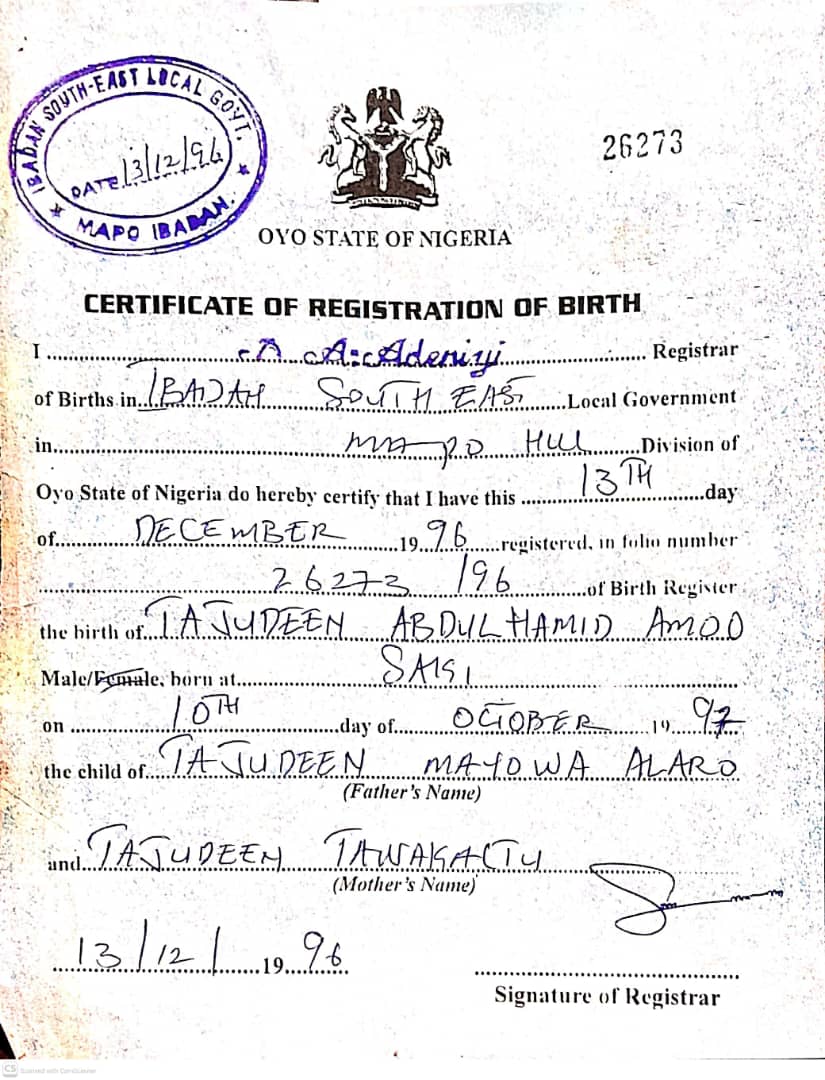 IBADAN SOUTH-EAST LOCAL GOVT.
DATE 13/12/96
MAPO IBADAN.
26273
OYO STATE OF NIGERIA
CERTIFICATE OF REGISTRATION OF BIRTH
I .......... A. Adeniyi .......... Registrar
of Births in.. IBADAN SOUTH EAST ..Local Government
in.......... MAPO HILL ......Division of
Oyo State of Nigeria do hereby certify that I have this .......... 13TH ..........day
of.......... DECEMBER ..........19.. 96 ....registered, in folio number
.......... 26273/96 ..........of Birth Register
the birth of.. TAJUDEEN ABDULHAMID AMOO
Male/Female, born at..........
on .......... 10TH ..........day of.......... OCTOBER .......... 19.. 97
the child of.. TAJUDEEN MAYOWA ALARO
(Father's Name)
and.. TAJUDEEN TAWAKALTU
(Mother's Name)
13/12/ 19.. 96
Signature of Registrar
CS Scanned with CamScanner